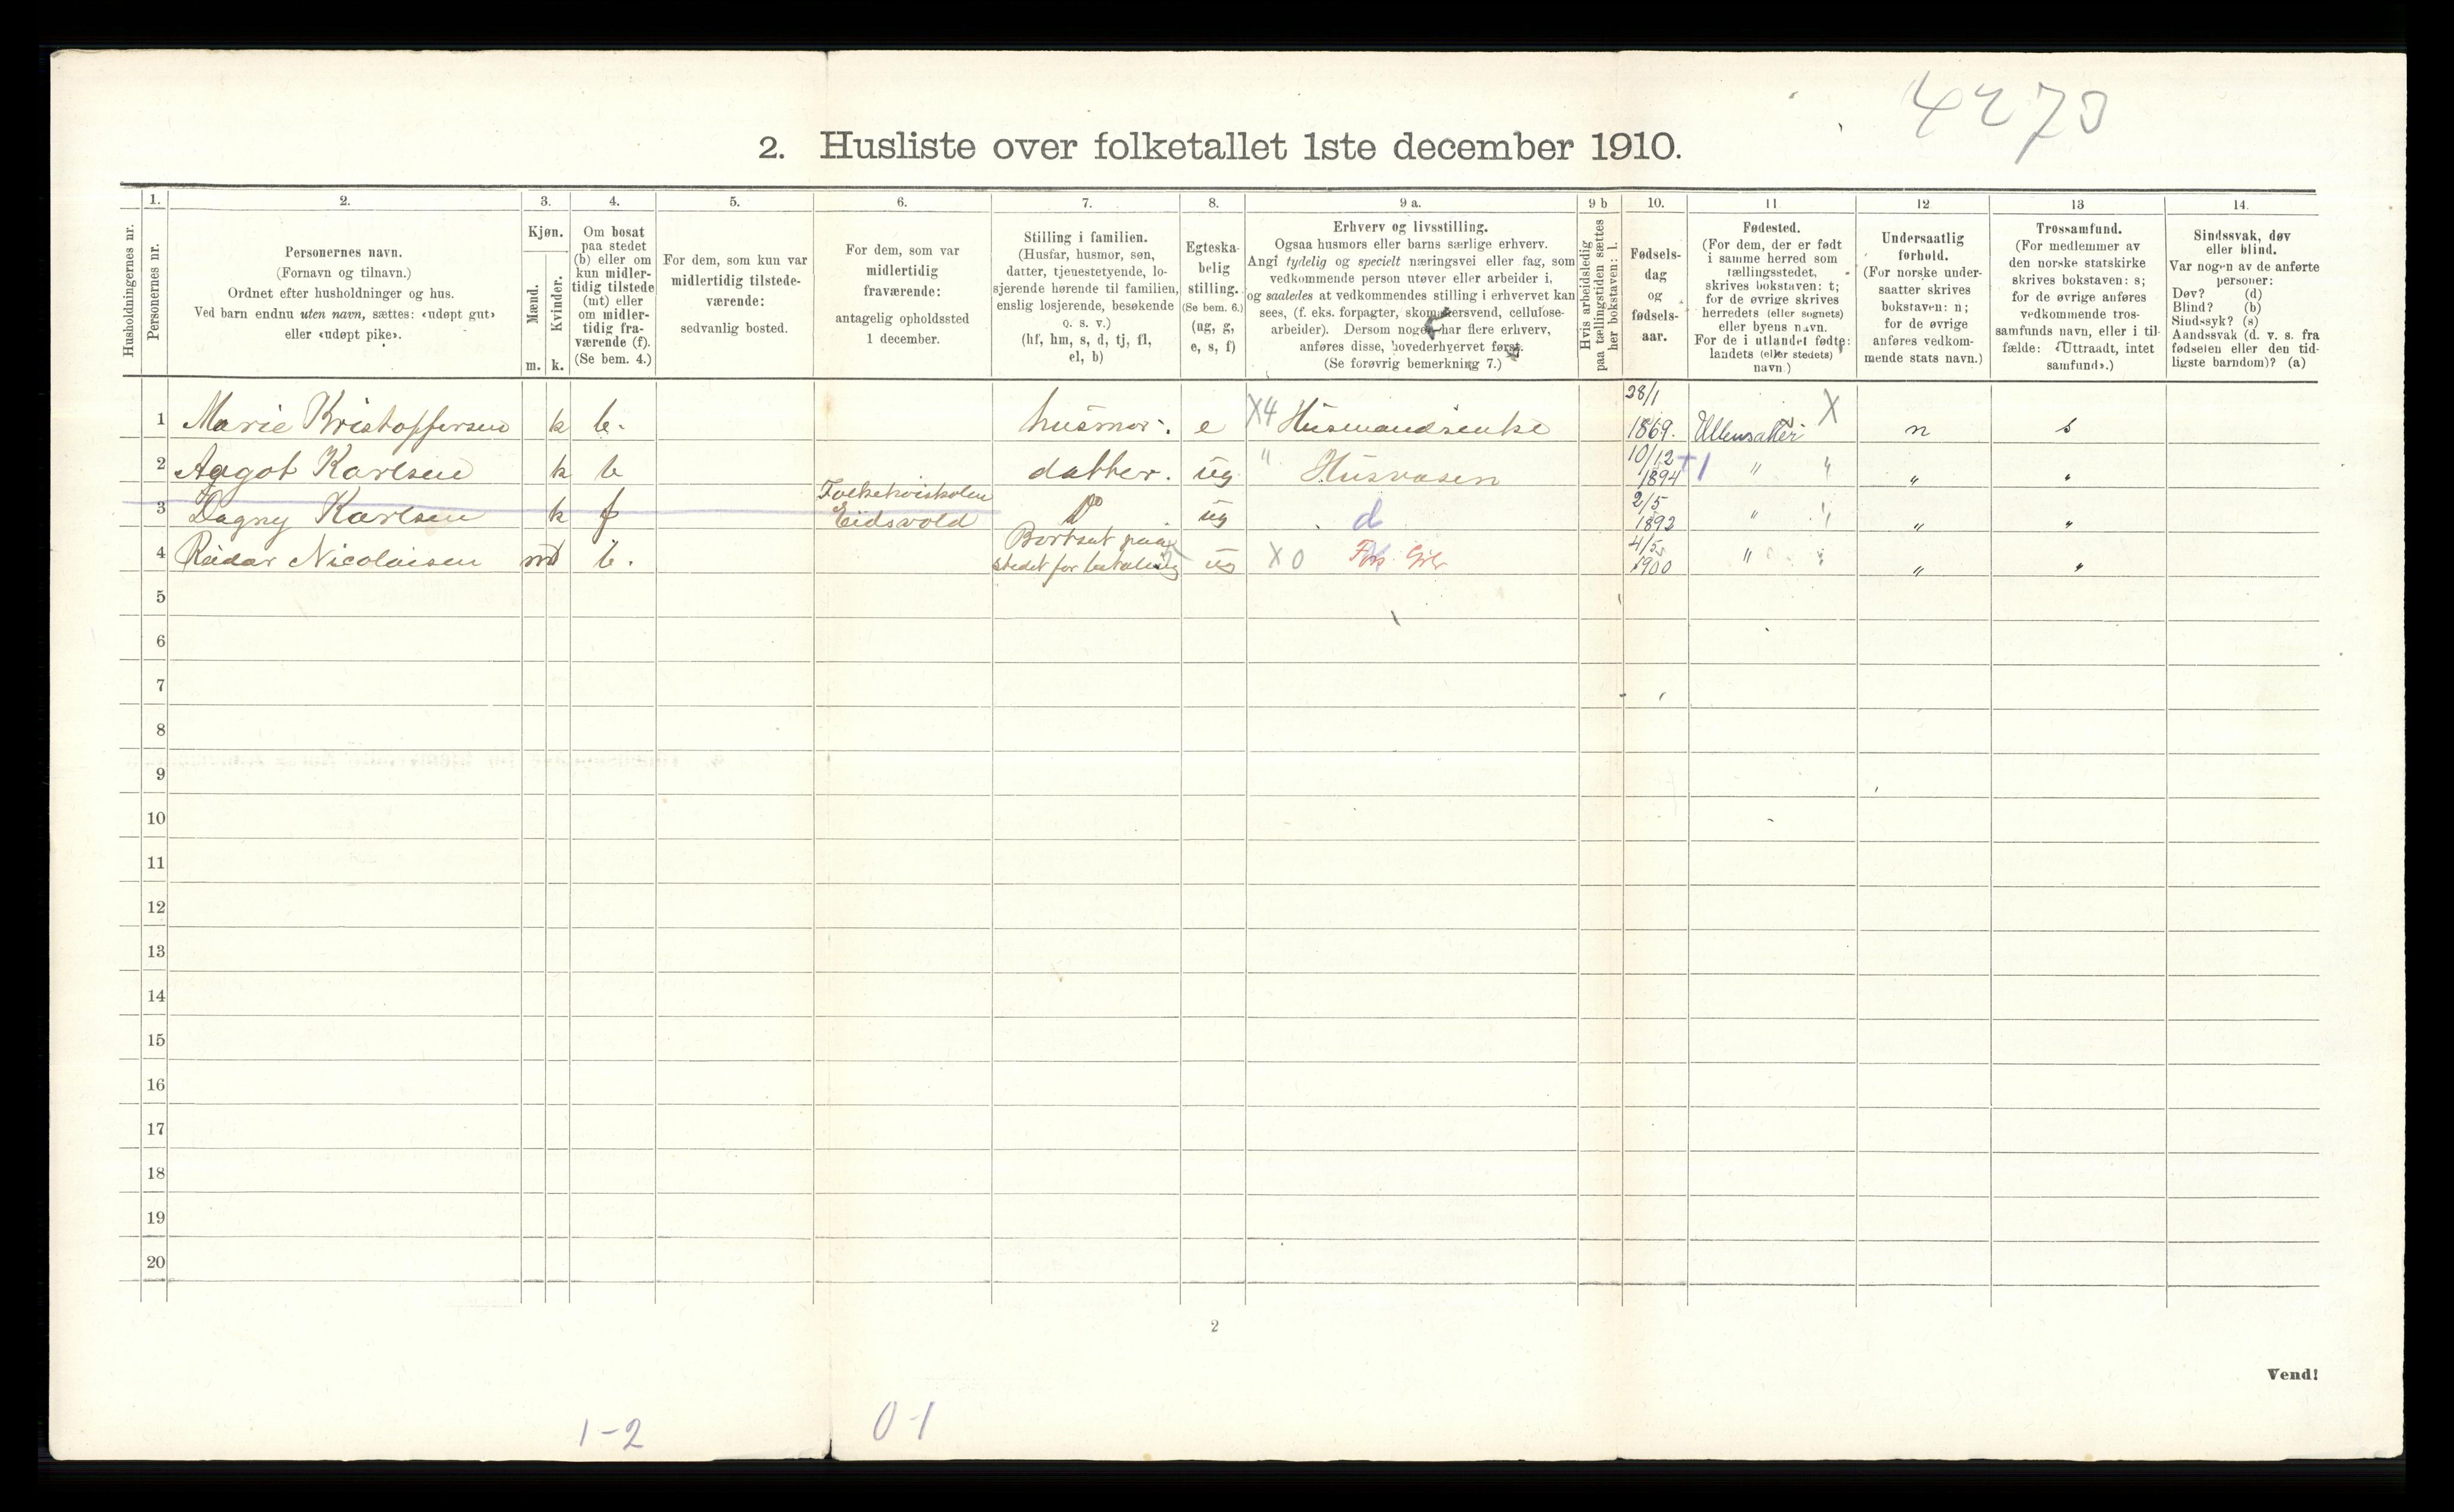 4273
2. Husliste over folketallet 1ste december 1910.
Husholdningernes nr.
1.
Personernes nr.
2.
Personernes navn.
(Fornavn og tilnavn.)
Ordnet efter husholdninger og hus.
Ved barn endnu uten navn, sættes: «udøpt gut»
eller «udøpt pike».
3.
Kjøn.
Mænd.
Kvinder.
m. k.
4.
Om bosat
paa stedet
(b) eller om
kun midler-
tidig tilstede
(mt) eller
om midler-
tidig fra-
værende (f).
(Se bem. 4.)
5.
For dem, som kun var
midlertidig tilstede-
værende:
sedvanlig bosted.
6.
For dem, som var
midlertidig
fraværende:
antagelig opholdssted
1 december.
7.
Stilling i familien.
(Husfar, husmor, søn,
datter, tjenestetyende, lo-
sjerende hørende til familien,
enslig losjerende, besøkende
o. s. v.)
(hf, hm, s, d, tj, fl,
el, b)
8.
Egteska-
belig
stilling.
(Se bem. 6.)
(ug, g,
e, s, f)
9 a.
Erhverv og livsstilling.
Ogsaa husmors eller barns særlige erhverv.
Angi tydelig og specielt næringsvei eller fag, som
vedkommende person utøver eller arbeider i,
og saaledes at vedkommendes stilling i erhvervet kan
sees, (f. eks. forpagter, skomakersvend, cellulose-
arbeider). Dersom nogen har flere erhverv,
anføres disse, hovederhvervet først.
(Se forøvrig bemerkning 7.)
9 b
Hvis arbeidsledig
paa tællingstiden sættes
her bokstaven: l.
10.
Fødsels-
dag
og
fødsels-
aar.
11
Fødested.
(For dem, der er født
i samme herred som
tællingsstedet,
skrives bokstaven: t;
for de øvrige skrives
herredets (eller sognets)
eller byens navn.
For de i utlandet fødte:
landets (eller stedets)
navn.)
12
Undersaatlig
forhold.
(For norske under-
saatter skrives
bokstaven: n;
for de øvrige
anføres vedkom-
mende stats navn.)
13
Trossamfund.
(For medlemmer av
den norske statskirke
skrives bokstaven: s;
for de øvrige anføres
vedkommende tros-
samfunds navn, eller i til-
fælde: «Uttraadt, intet
samfund».)
14.
Sindssvak, døv
eller blind.
Var nogen av de anførte
personer:
Døv? (d)
Blind? (b)
Sindssyk? (s)
Aandssvak (d. v. s. fra
fødselen eller den tid-
ligste barndom)? (a)
1 Marie Kristoffersen k b. husmor. e X4 Husmandsenke 28/1 1869. Ullensaker X n s
2 Aagot Karlsen k b datter. ug " Husvasen 10/12 1894 +1 " " " "
3 Dagny Karlsen k f Folkehøiskolen Eidsvold Do ug d 2/5 1892 " " " "
4 Reidar Nicolaisen m b. Bortsat paa stedet for betaling ug X 0 4/5 1900 " " " "
5
6
7
8
9
10
11
12
13
14
15
16
17
18
19
20
2
Vend!
1-2
0-1